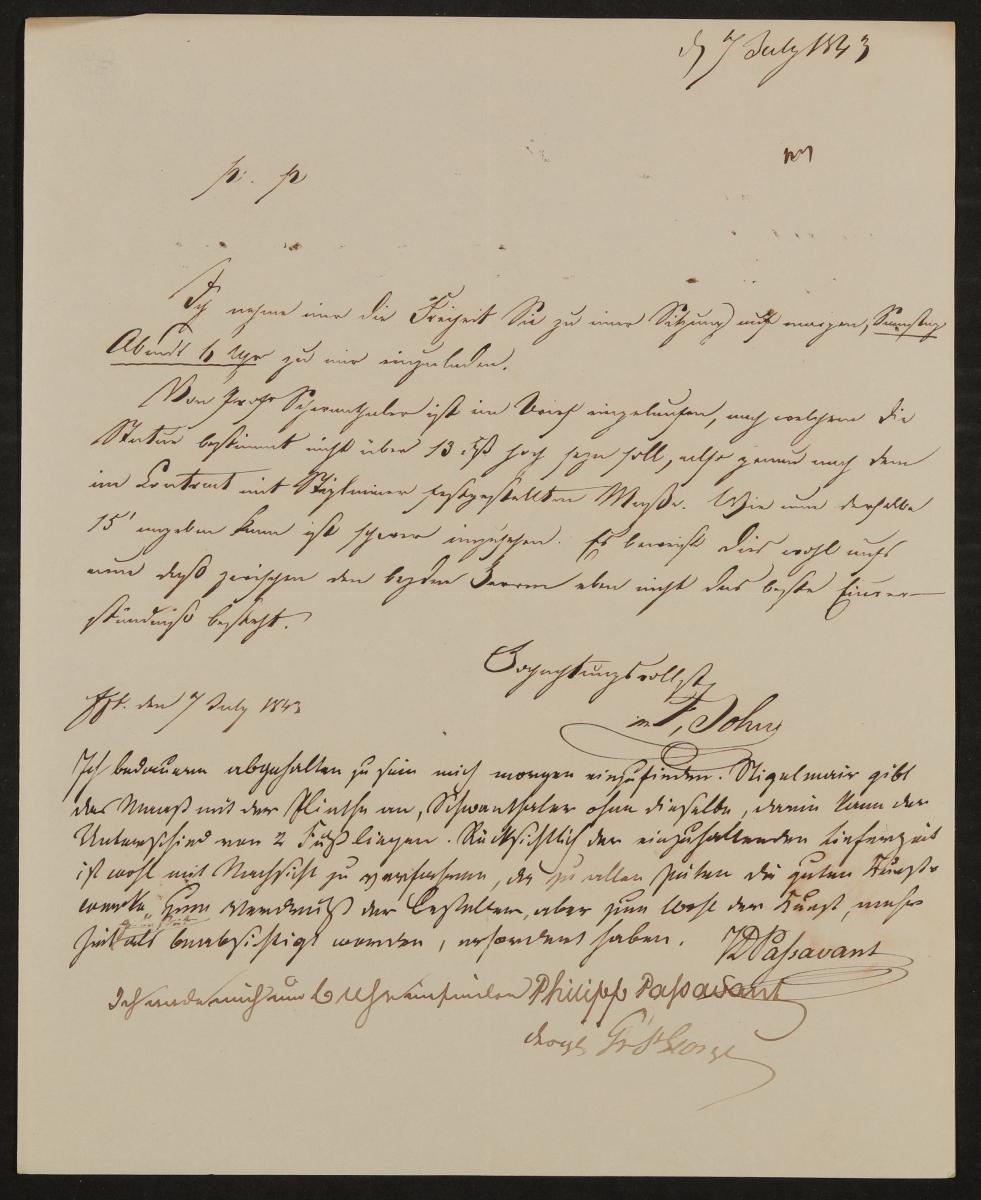 d 7 July 1843
p. p
Ich nehme mir die Freiheit Sie zu einer Sitzung auf morgen, Samstag
Abends 6 Uhr zu mir einzuladen.
Von Profr Schwanthaler ist ein Brief eingelaufen, nach welchem die
Statue bestimmt nicht über 13 Fuß hoch seyn soll, also genau nach dem
im Contract mit Stiglmaier festgestellten Maße. Wie nun derselbe
15' angeben kann ist schwer einzusehen. Es beweist dies wohl aufs
neue daß zwischen den beyden Herren eben nicht das beste Einver-
ständniß besteht.
Hochachtungsvollst
F. John
Fft. den 7 July 1843
Ich bedauere abgehalten zu sein mich morgen einzufinden. Stigelmair gibt
das Maaß mit der Plinthe an, Schwanthaler ohne dieselbe, darin kann der
Unterschied von 2 Fuß liegen. Rücksichtlich der einzuhaltenden Lieferzeit
ist wohl mit Nachsicht zu verfahren, da zu allen Zeiten die guten Kunst-
werke zum Verdruß der Besteller, aber zum Wohl der Kunst, mehr
Zeit als beabsichtigt worden, erfordert haben.
JD Passavant
Ich werde mich um 6 Uhr einfinden Philipp Passavant
Gr St George